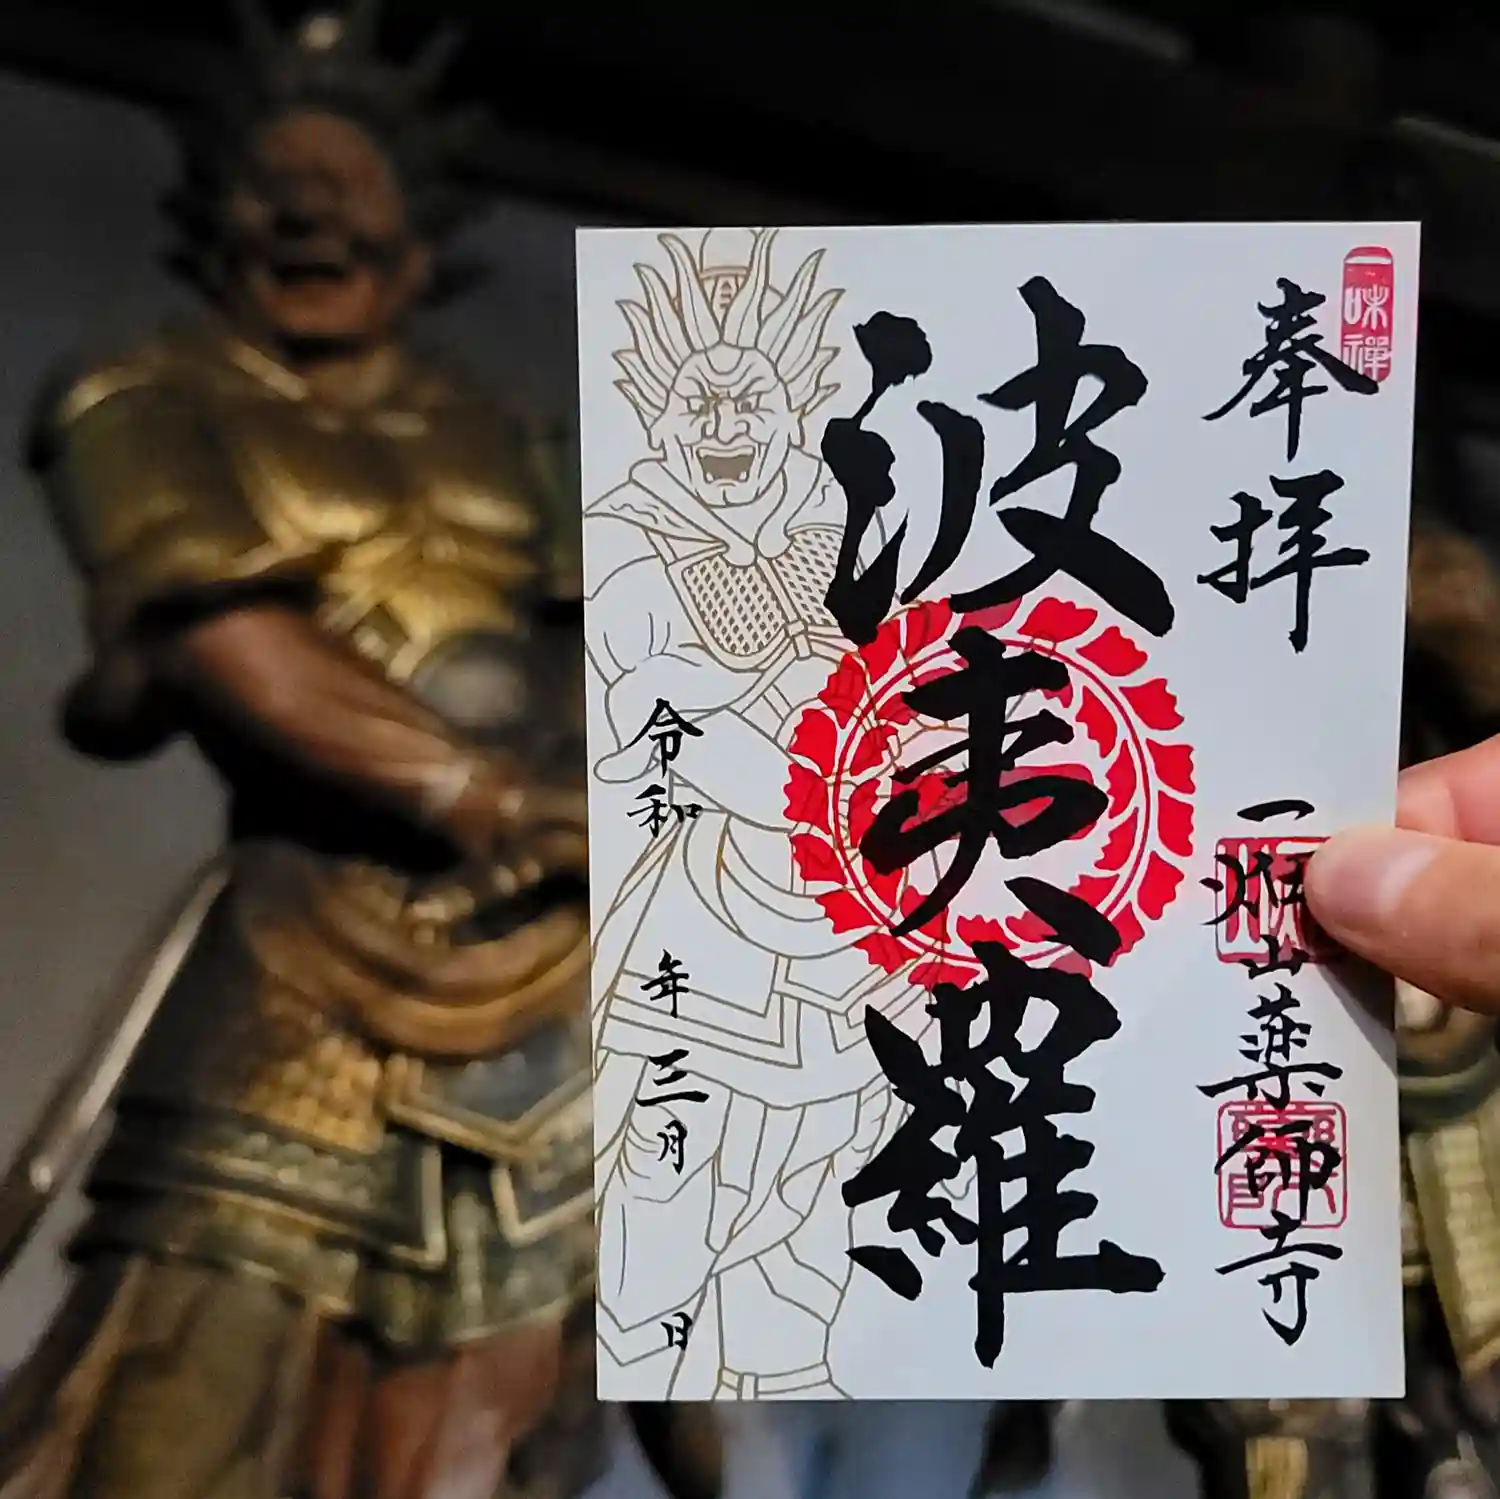 一味禅
奉拝
一畑山薬師寺
波夷羅
令和 年三月 日